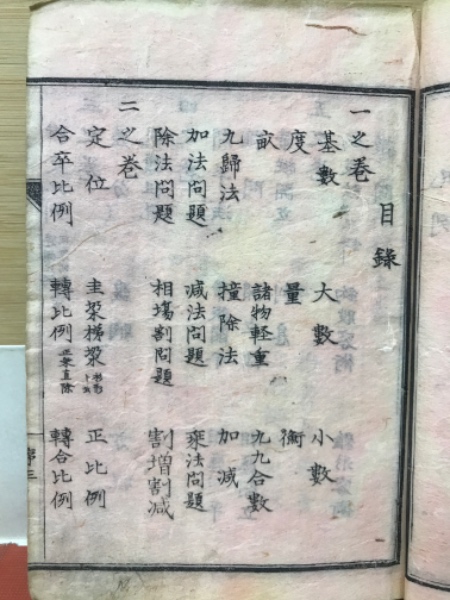 目錄
一之巻
基數 大數 小數
度 量 衡
畝 諸物軽重 九九合數
九歸法 撞除法 加減
加法問題 減法問題 乗法問題
除法問題 相塲割問題 割増割減
二之巻
定位 圭梁梯梁 正比例
合卒比例 轉比例 轉合比例